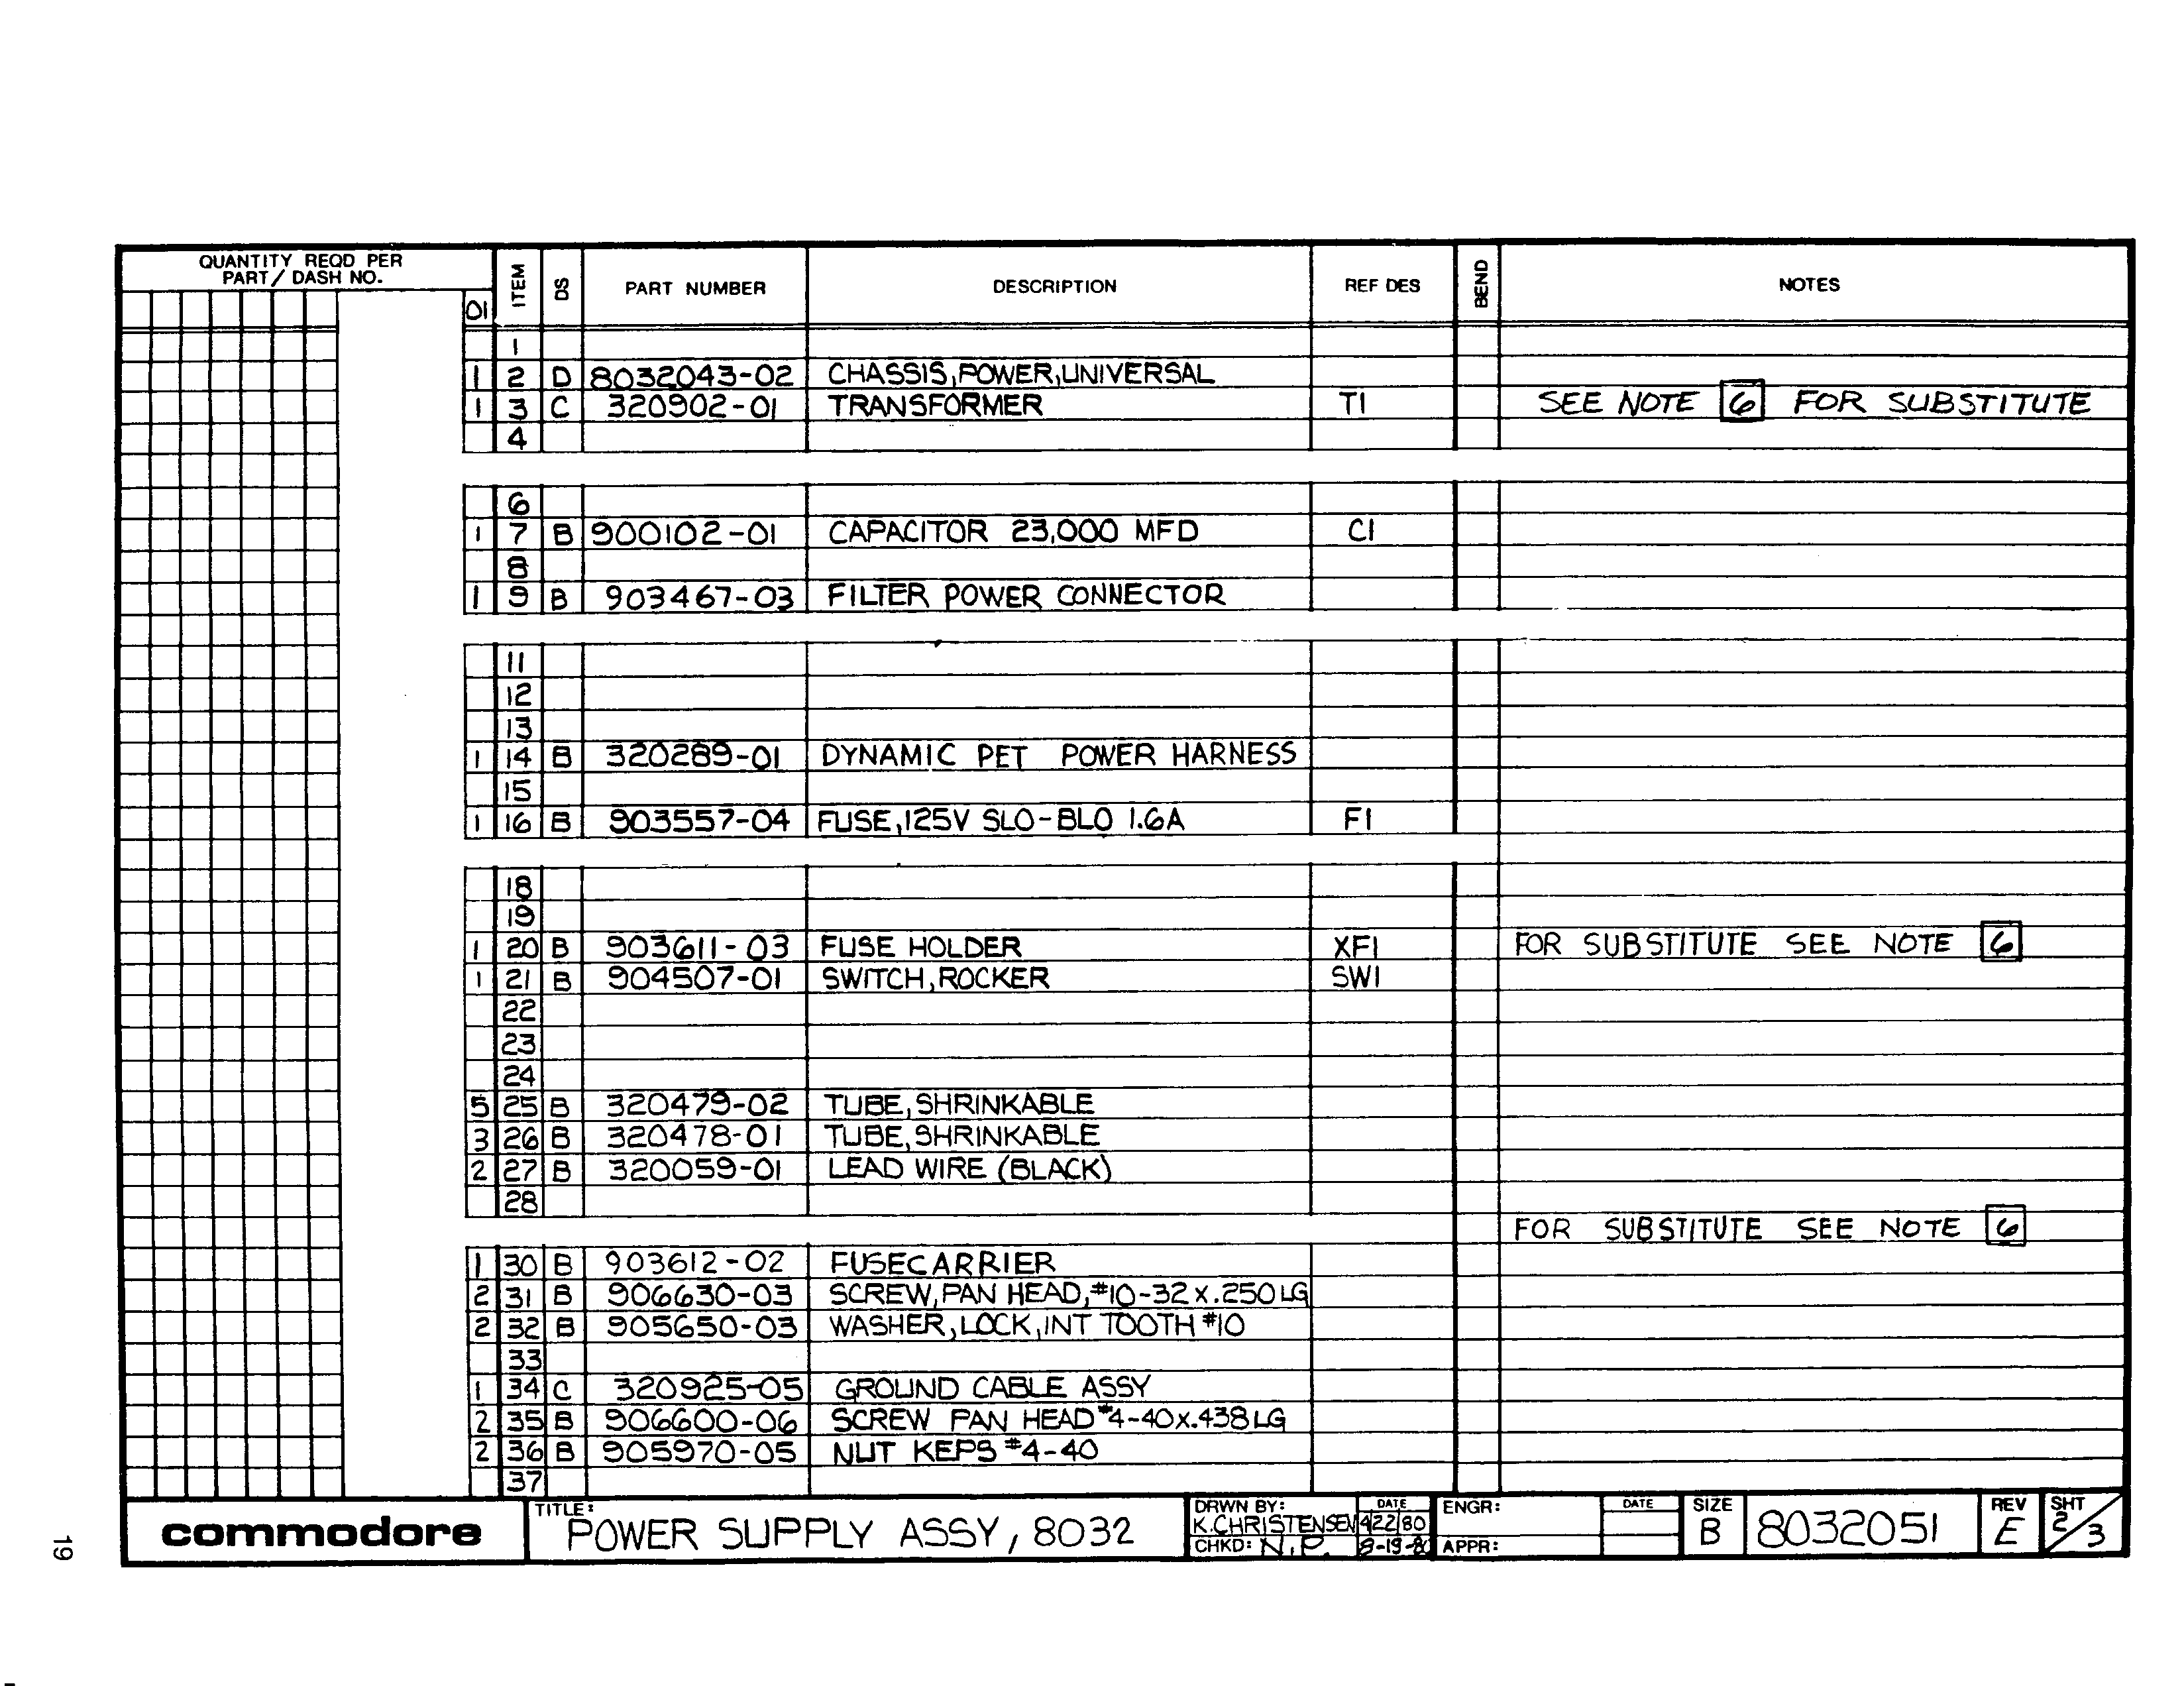 QUANTITY REQD PER
PART / DASH NO.
01 ITEM DS PART NUMBER DESCRIPTION REF DES BEND NOTES
1
1 2 D 8032043-02 CHASSIS, POWER, UNIVERSAL
1 3 C 320902-01 TRANSFORMER T1 SEE NOTE 6 FOR SUBSTITUTE
4
6
1 7 B 900102-01 CAPACITOR 23,000 MFD C1
8
1 9 B 903467-03 FILTER POWER CONNECTOR
11
12
13
1 14 B 320289-01 DYNAMIC PET POWER HARNESS
15
1 16 B 903557-04 FUSE, 125V SLO-BLO 1.6A F1
18
19
1 20 B 903611-03 FUSE HOLDER XF1 FOR SUBSTITUTE SEE NOTE 6
1 21 B 904507-01 SWITCH, ROCKER SW1
22
23
24
5 25 B 320479-02 TUBE, SHRINKABLE
3 26 B 320478-01 TUBE, SHRINKABLE
2 27 B 320059-01 LEAD WIRE (BLACK)
28
FOR SUBSTITUTE SEE NOTE 6
1 30 B 903612-02 FUSECARRIER
2 31 B 906630-03 SCREW, PAN HEAD, #10-32 x .250 LG
2 32 B 905650-03 WASHER, LOCK, INT TOOTH #10
33
1 34 C 320925-05 GROUND CABLE ASSY
2 35 B 906600-06 SCREW PAN HEAD #4-40 x .438 LG
2 36 B 905970-05 NUT KEPS #4-40
37
commodore
TITLE: POWER SUPPLY ASSY, 8032
DRWN BY: K. CHRISTENSEN DATE 4 22 80
CHKD: N.P. 8-19-80
ENGR: DATE
APPR:
SIZE B 8032051 REV E SHT 2/3
19